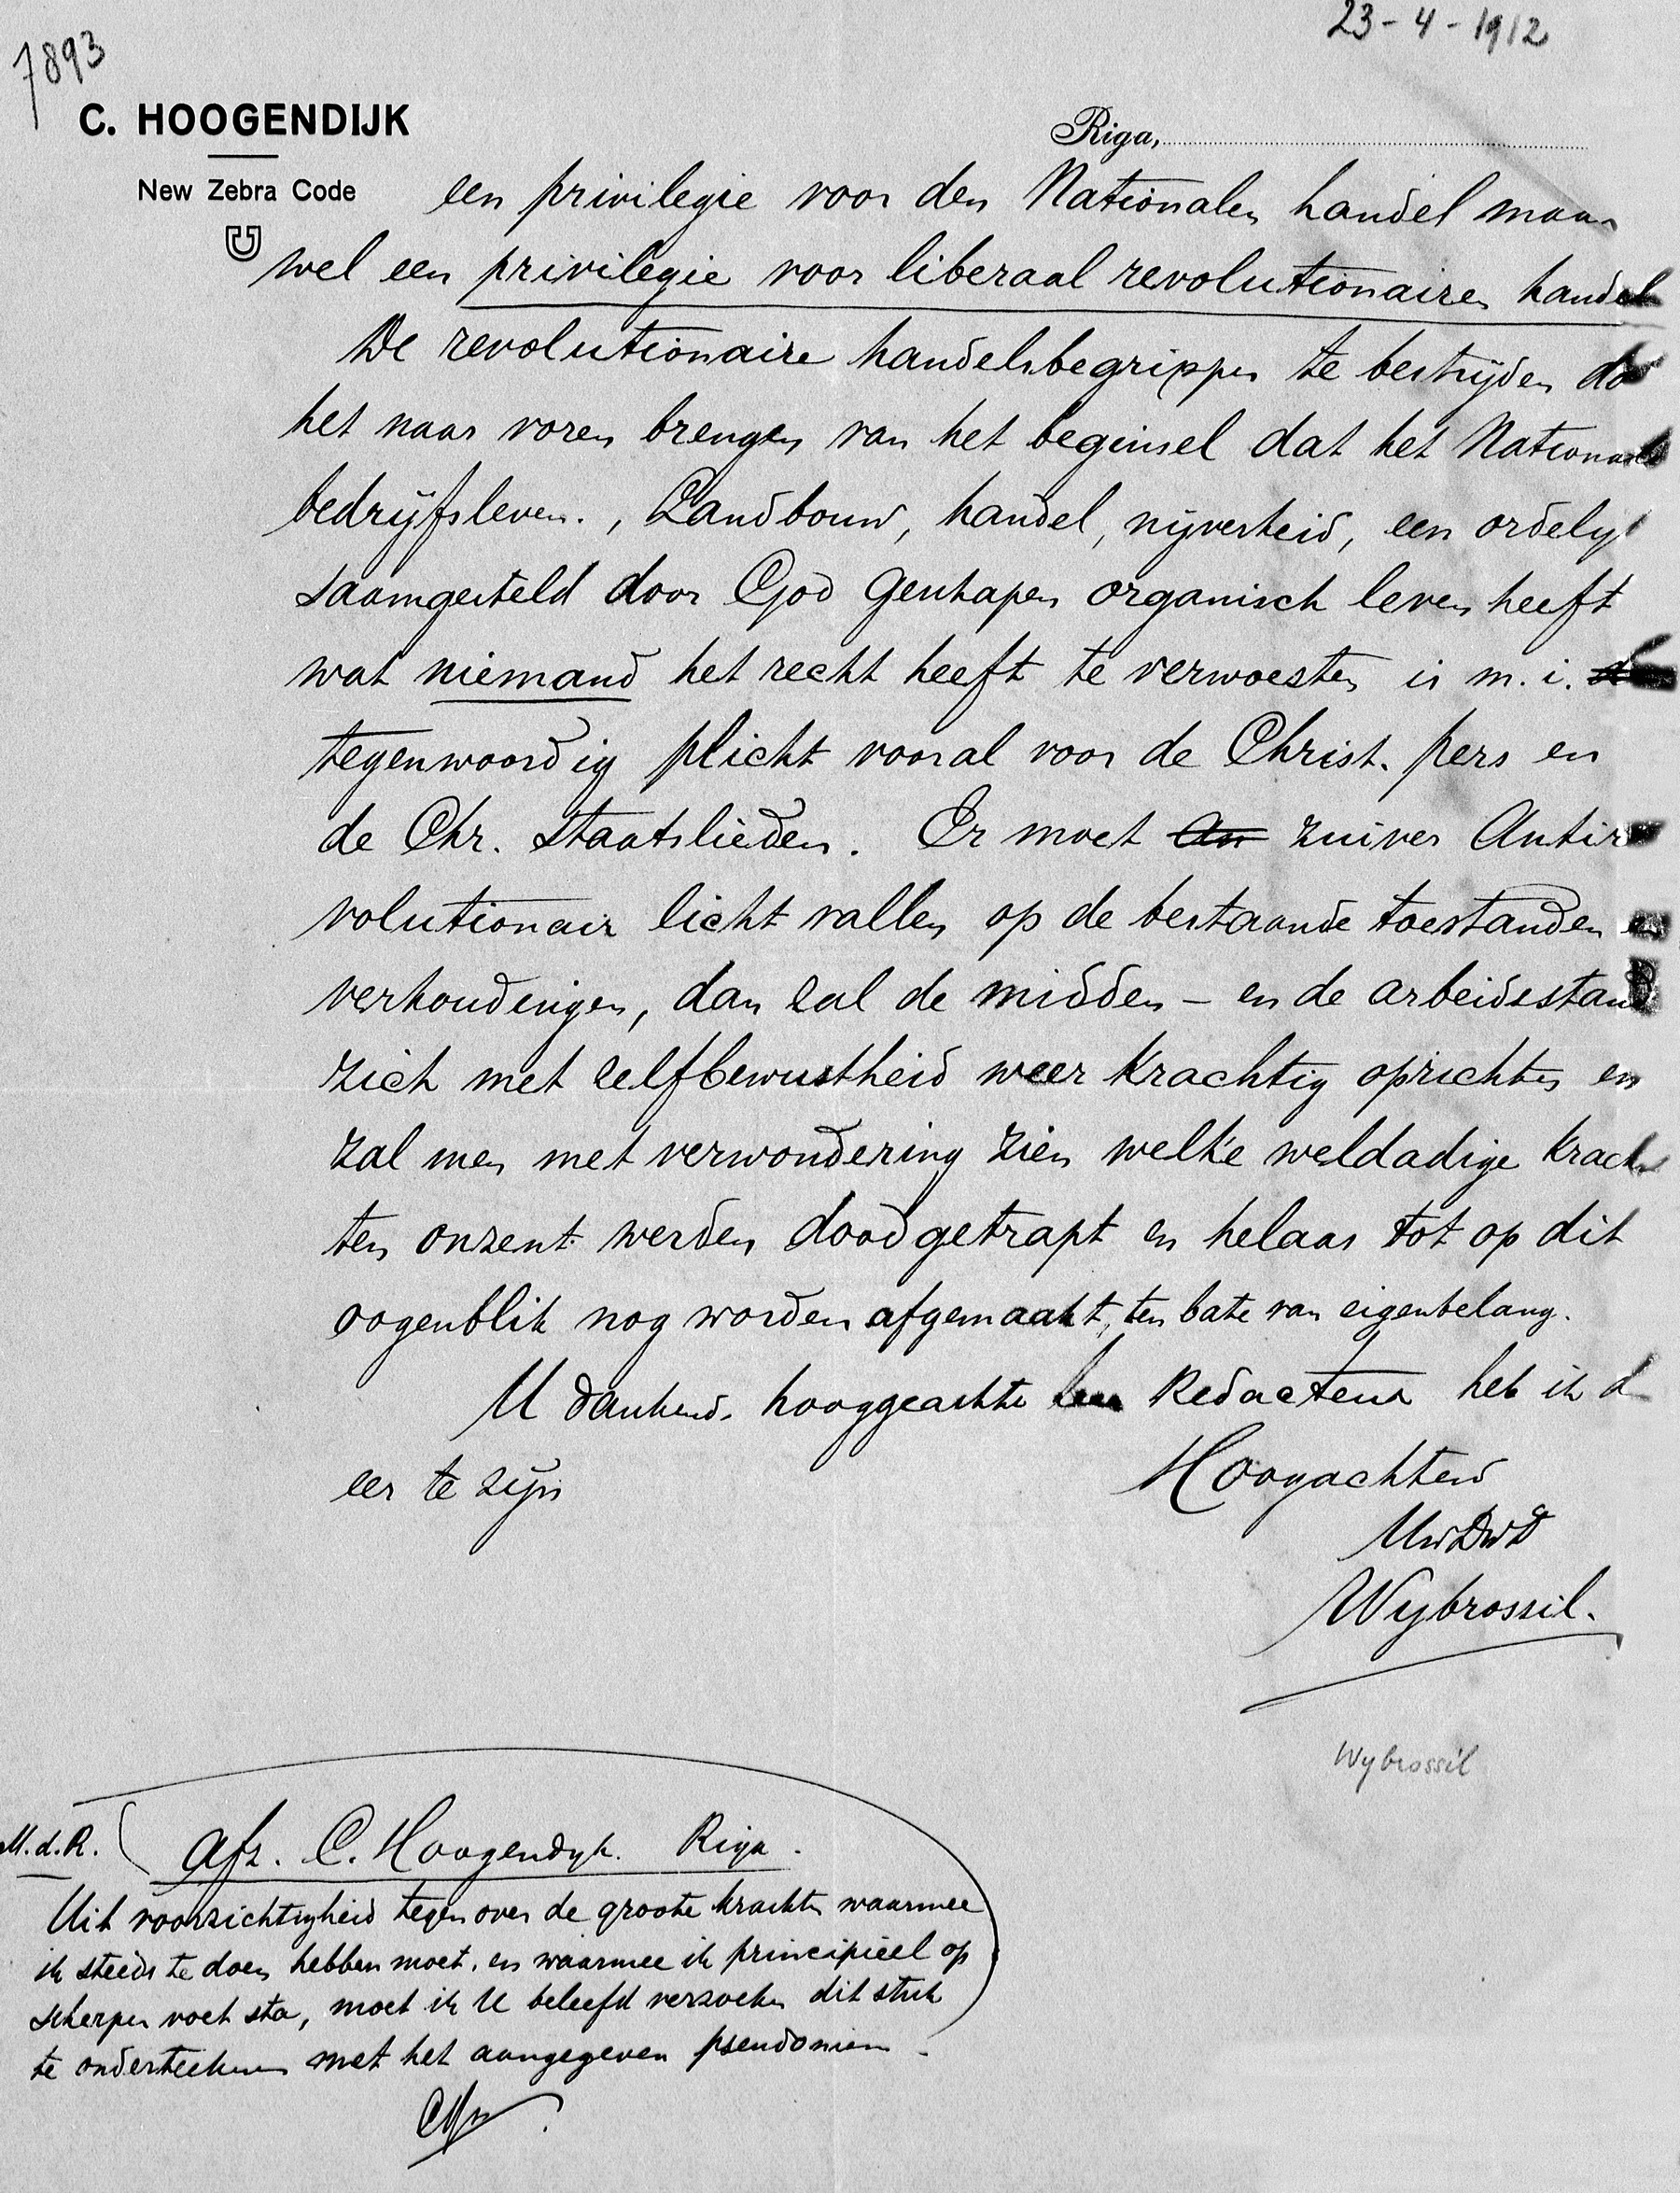 23-4-1912
7893
C. HOOGENDIJK
Riga,
New Zebra Code
een privilegie voor den Nationalen handel maar
wel een privilegie voor liberaal revolutionairen handel
De revolutionaire handelsbegrippen te bestrijden do
het naar voren brengen van het beginsel dat het Nationale
bedrijfsleven., Landbouw, handel, nijverheid, een ordelijk
saamgesteld door God geschapen organisch leven heeft
wat niemand het recht heeft te verwoesten is m. i.
tegenwoordig plicht vooral voor de Christ. pers en
de Chr. Staatslieden. Er moet an zuiver Antire
volutionair licht vallen op de bestaande toestanden en
verhoudingen, dan zal de midden - en de arbeidsstand
zich met zelfbewustheid weer krachtig oprichten en
zal men met verwondering zien welke weldadige krach
ten onzent werden doodgetrapt en helaas tot op dit
oogenblik nog worden afgemaakt, ten bate van eigenbelang.
U dankend, hooggeachte Redacteur heb ik d
eer te zijn
Hoogachtend
UwDwD
Wybrossil.
Wybrossil
M.d.R. ( Afz. C. Hoogendyk. Riga.
Uit voorzichtigheid tegenover de groote krachten waarmee
ik steeds te doen hebben moet, en waarmee ik principieel op
scherpen voet sta, moet ik U beleefd verzoeken dit stuk
te onderteekenen met het aangegeven pseudoniem.